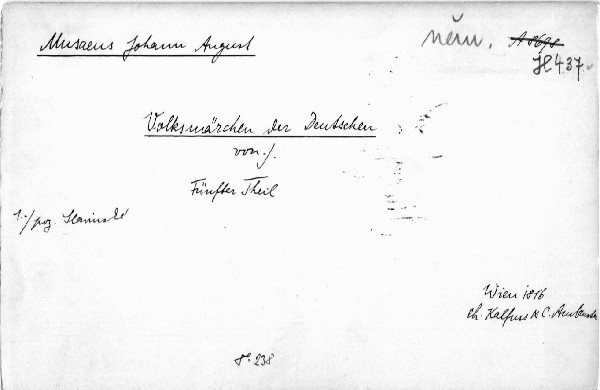 Musaeus Johann August
něm.
A 8698
H 437.
Volksmärchen der Deutschen
von ./.
Fünfter Theil
1./ poz. Slavinské
Wien 1816
Ch. Kalfuss & C.
8° 238